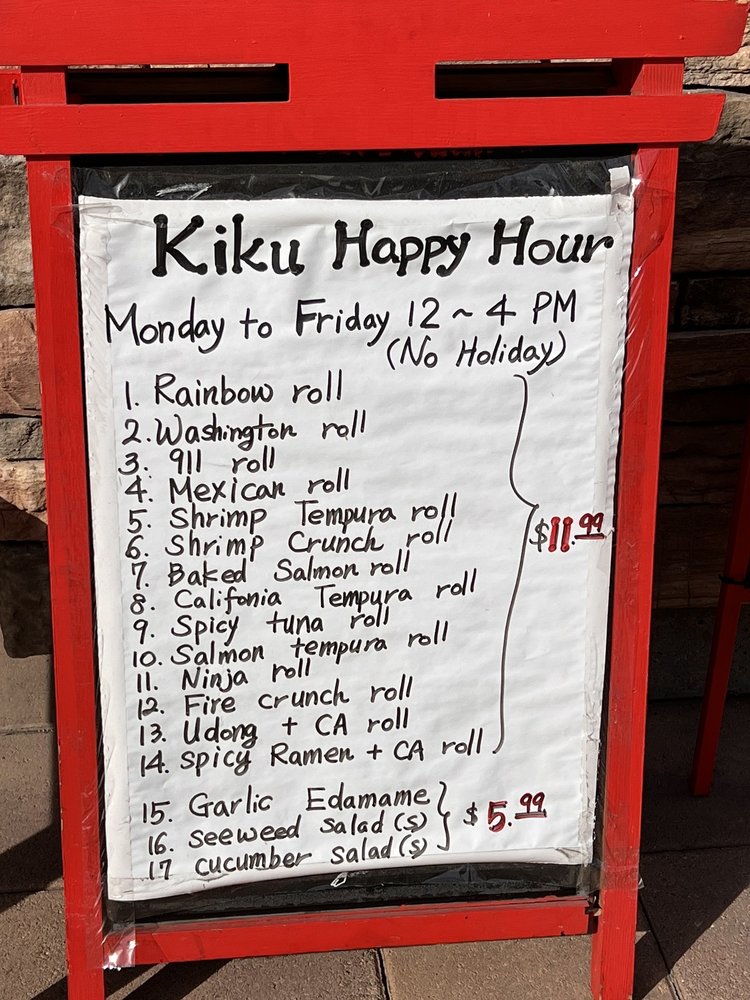 Kiku Happy Hour
Monday to Friday 12 ~ 4 PM
(No Holiday)
1. Rainbow roll
2. Washington roll
3. 911 roll
4. Mexican roll
5. Shrimp Tempura roll
6. Shrimp Crunch roll
7. Baked Salmon roll
8. Califonia Tempura roll
9. Spicy tuna roll
10. Salmon tempura roll
11. Ninja roll
12. Fire crunch roll
13. Udong + CA roll
14. spicy Ramen + CA roll
$11.99
15. Garlic Edamame
16. seeweed salad (s)
17 cucumber salad (s)
$5.99